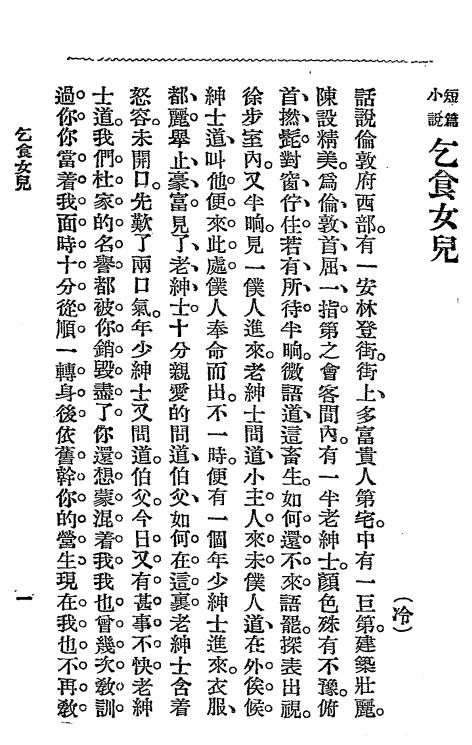 短篇小說 乞食女兒
(冷)
話說倫敦府西部。有一安林登街。街上、多富貴人第宅。中有一巨第。建築壯麗。
陳設精美。爲倫敦首屈一指第之會客間內。有一半老紳士。顏色殊有不豫。俯
首、撚髭。對窗佇住。若有所待。半晌。微語道、這畜生。如何還不來。語罷。探表出視。
徐步室內。又半晌。見一僕人進來。老紳士問道、小主人來未。僕人道、在外俟候。
紳士道、叫他便來此處。僕人奉命而出。不一時。便有一個年少紳士進來。衣服、
都麗。舉止、豪富。見了老紳士。十分親愛的問道、伯父、如何在這裏。老紳士含着
怒容。未開口。先歎了兩口氣。年少紳士又問道。伯父。今日又有甚事不快。老紳
士道。我們杜家的名譽。都被你銷毀盡了。你還想蒙混着我。我也曾幾次教訓
過你。你當着我面時。十分從順。一轉身後。依舊幹你的營生。現在我也不再教
乞食女兒
一